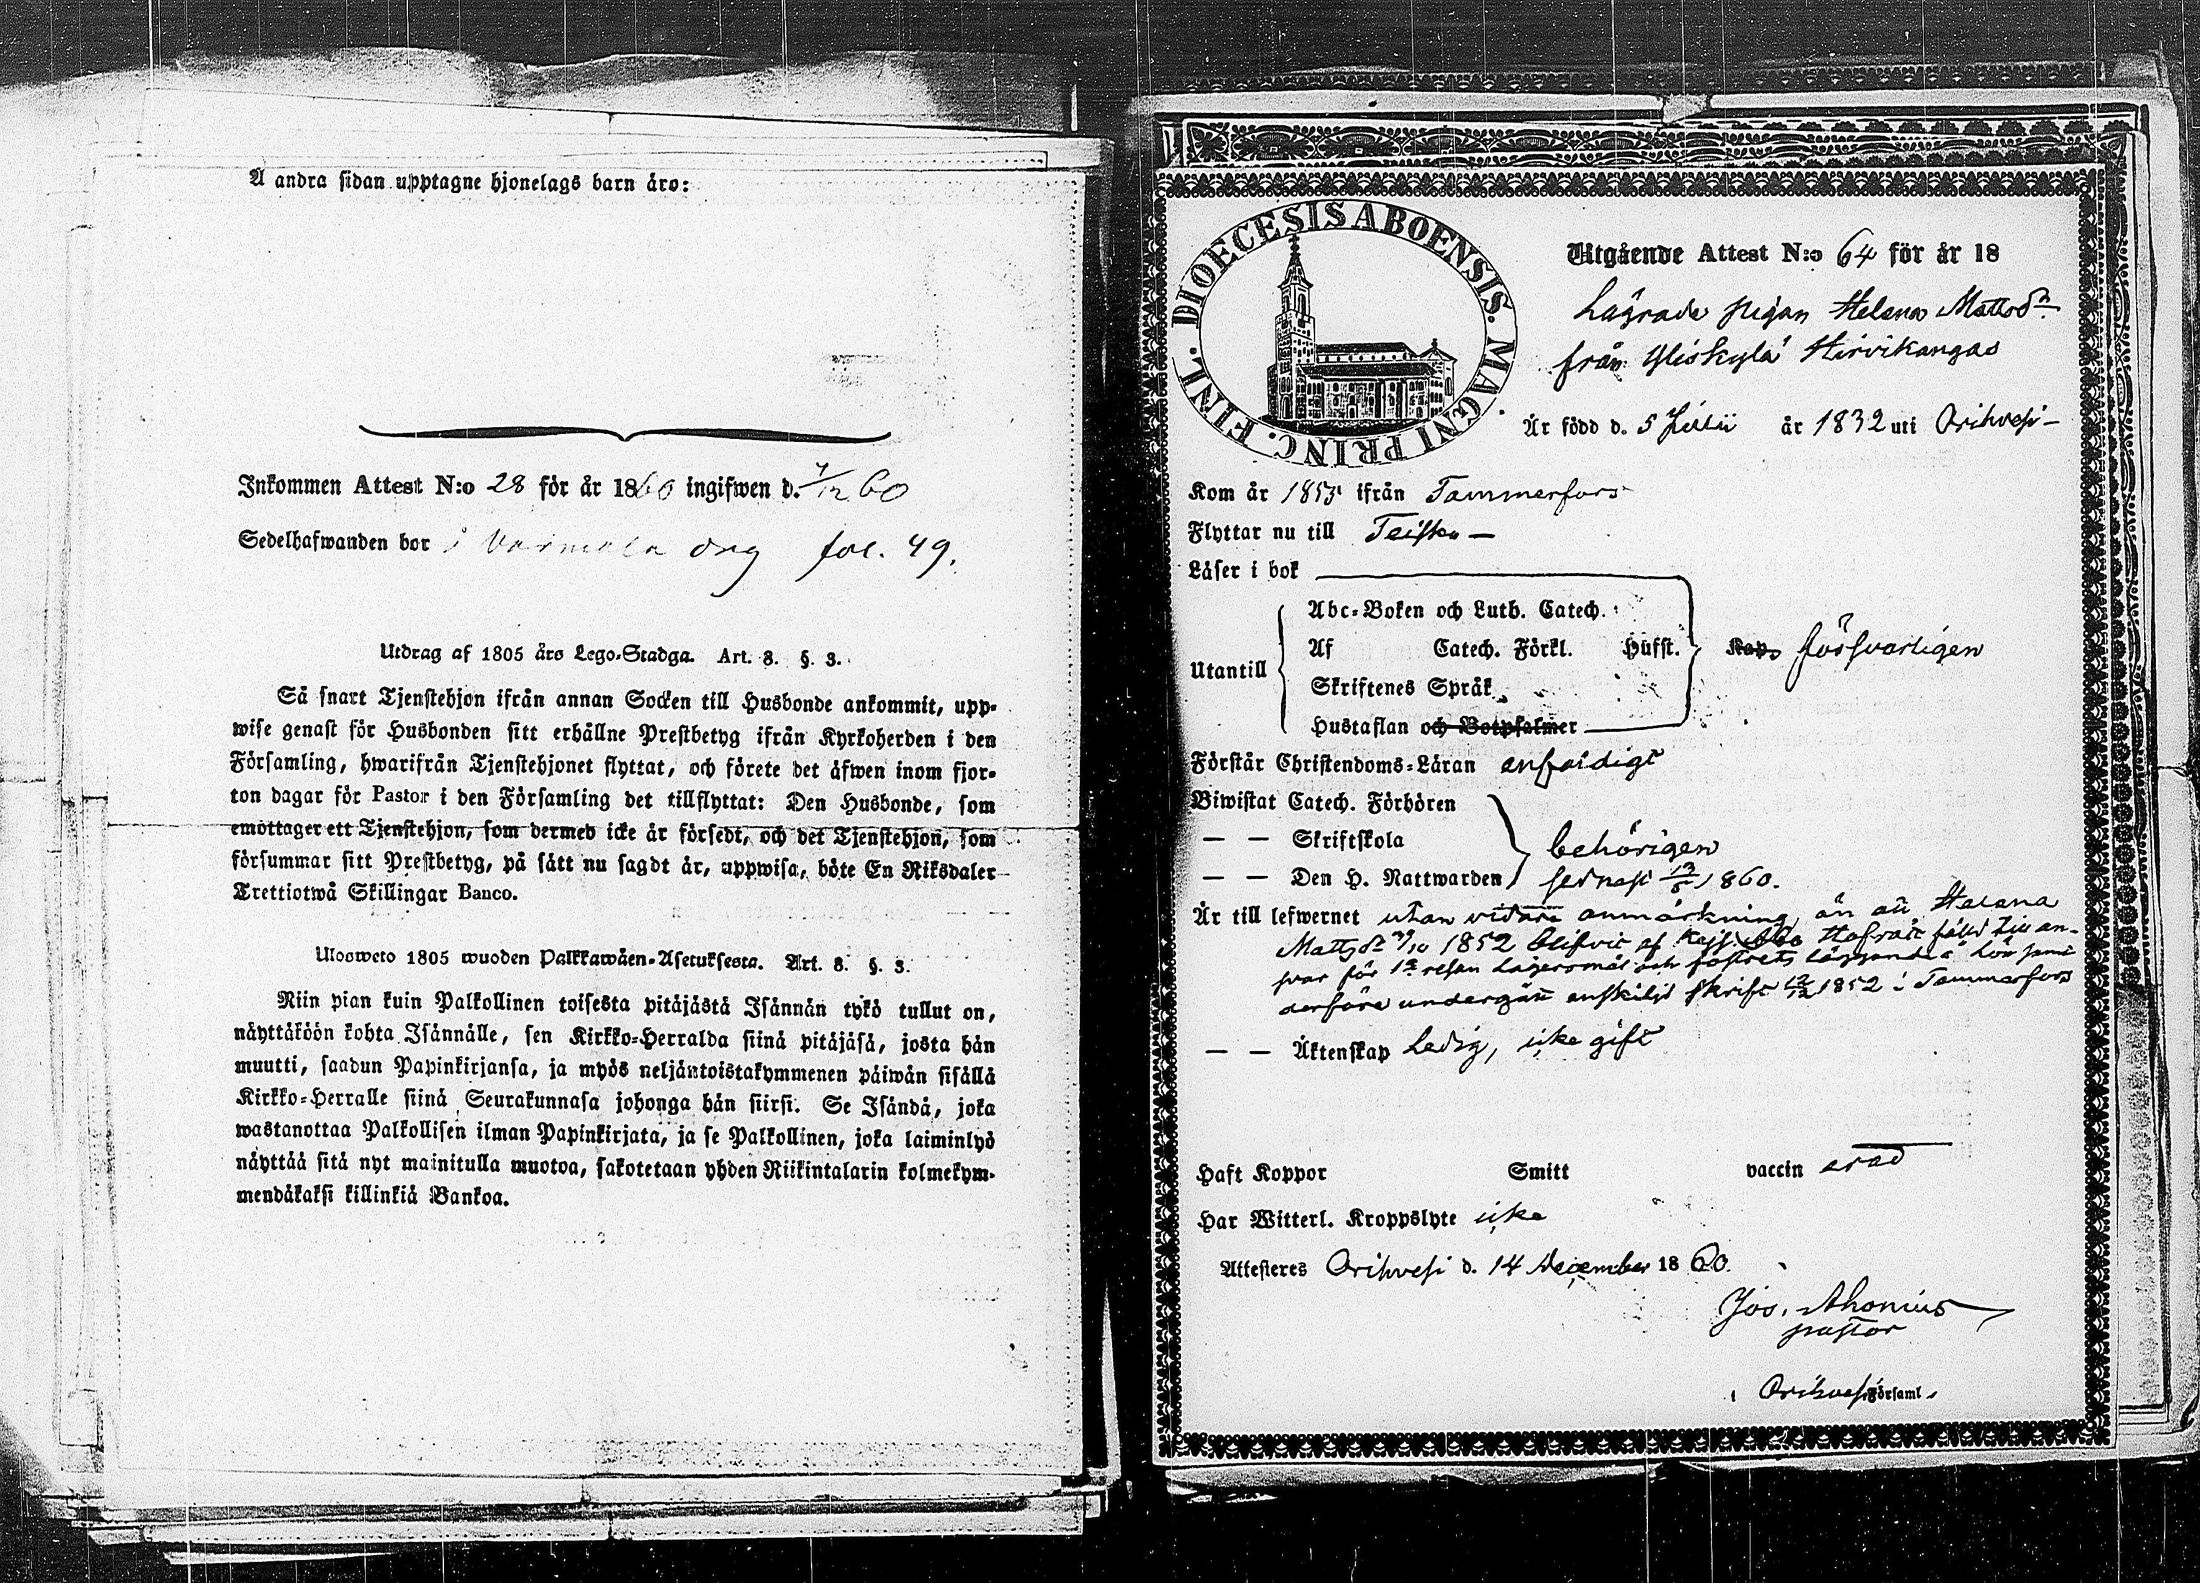 Å andra sidan upptagne hjonelags barn äro:
Inkommen Attest N:o 28 för år 1860 ingifwen d. /12 60
Sedelhafwanden bor i fol. 49.
Utdrag af 1805 års Lego-Stadga. Art. 8. §. 3.
Så snart Tjenstehjon ifrån annan Socken till Husbonde ankommit, upp-
wise genast för Husbonden sitt erhållne Prestbetyg ifrån Kyrkoherden i den
Församling, hwarifrån Tjenstehjonet flyttat, och förete det äfwen inom fjor-
ton dagar för Pastor i den Församling det tillflyttat: Den Husbonde, som
emottager ett Tjenstehjon, som dermed icke är försedt, och det Tjenstehjon, som
försummar sitt Prestbetyg, på sätt nu sagdt är, uppwisa, böte En Riksdaler
Trettiotwå Skillingar Banco.
Uloosweto 1805 wuoden Palkkawäen-Asetuksesta. Art. 8. §. 3.
Niin pian kuin Palkollinen toisesta pitäjästä Isännän tykö tullut on,
näyttäköön kohta Isännälle, sen Kirkko-Herralda siinä pitäjäsä, josta hän
muutti, saadun Papinkirjansa, ja myös neljäntoistakymmenen päiwän sisällä
Kirkko-Herralle siinä Seurakunnasa johonga hän siirsi. Se Isändä, joka
wastanottaa Palkollisen ilman Papinkirjata, ja se Palkollinen, joka laiminlyö
näyttää sitä nyt mainitulla muotoa, sakotetaan yhden Riikintalarin kolmekym-
mendäkaksi killinkiä Bankoa.
DIOECESIS ABOENSIS. MAGNI PRINC. FINL.
Utgående Attest N:o 64 för år 18
Lägrade pigan Helena Mattsdr
från Yliskylä Hirvikangas
Är född d. 5 Julii år 1832 uti Orihvesi
Kom år 1853 ifrån Tammerfors
Flyttar nu till Teisko
Läser i bok
Abc-Boken och Luth. Catech.
Utantill Af Catech. Förkl. Husst. försvarligen
Skriftenes Språk
Hustaflan och Botpsalmer
Förstår Christendoms-Läran enfaldigt
Biwistat Catech. Förhören
— — Skriftskola behörigen
— — Den H. Nattwarden senast 1860.
Är till lefwernet utan vidare anmärkning, än att Helena
Mattsdr /10 1852 blifvit af Kejs. Hofrätt fälld till an-
svar för 1a resan Lägersmål och fostrets läggande å lön samt
derföre undergått enskilt skrift 1852 i Tammerfors
— — Äktenskap Ledig, icke gift
Haft Koppor Smitt vaccin erad
Har Witterl. Kroppslyte icke
Attesteres Orihvesi d. 14 December 1860.
Jos. Ahonius
pastor
i Orihvesi Församl.